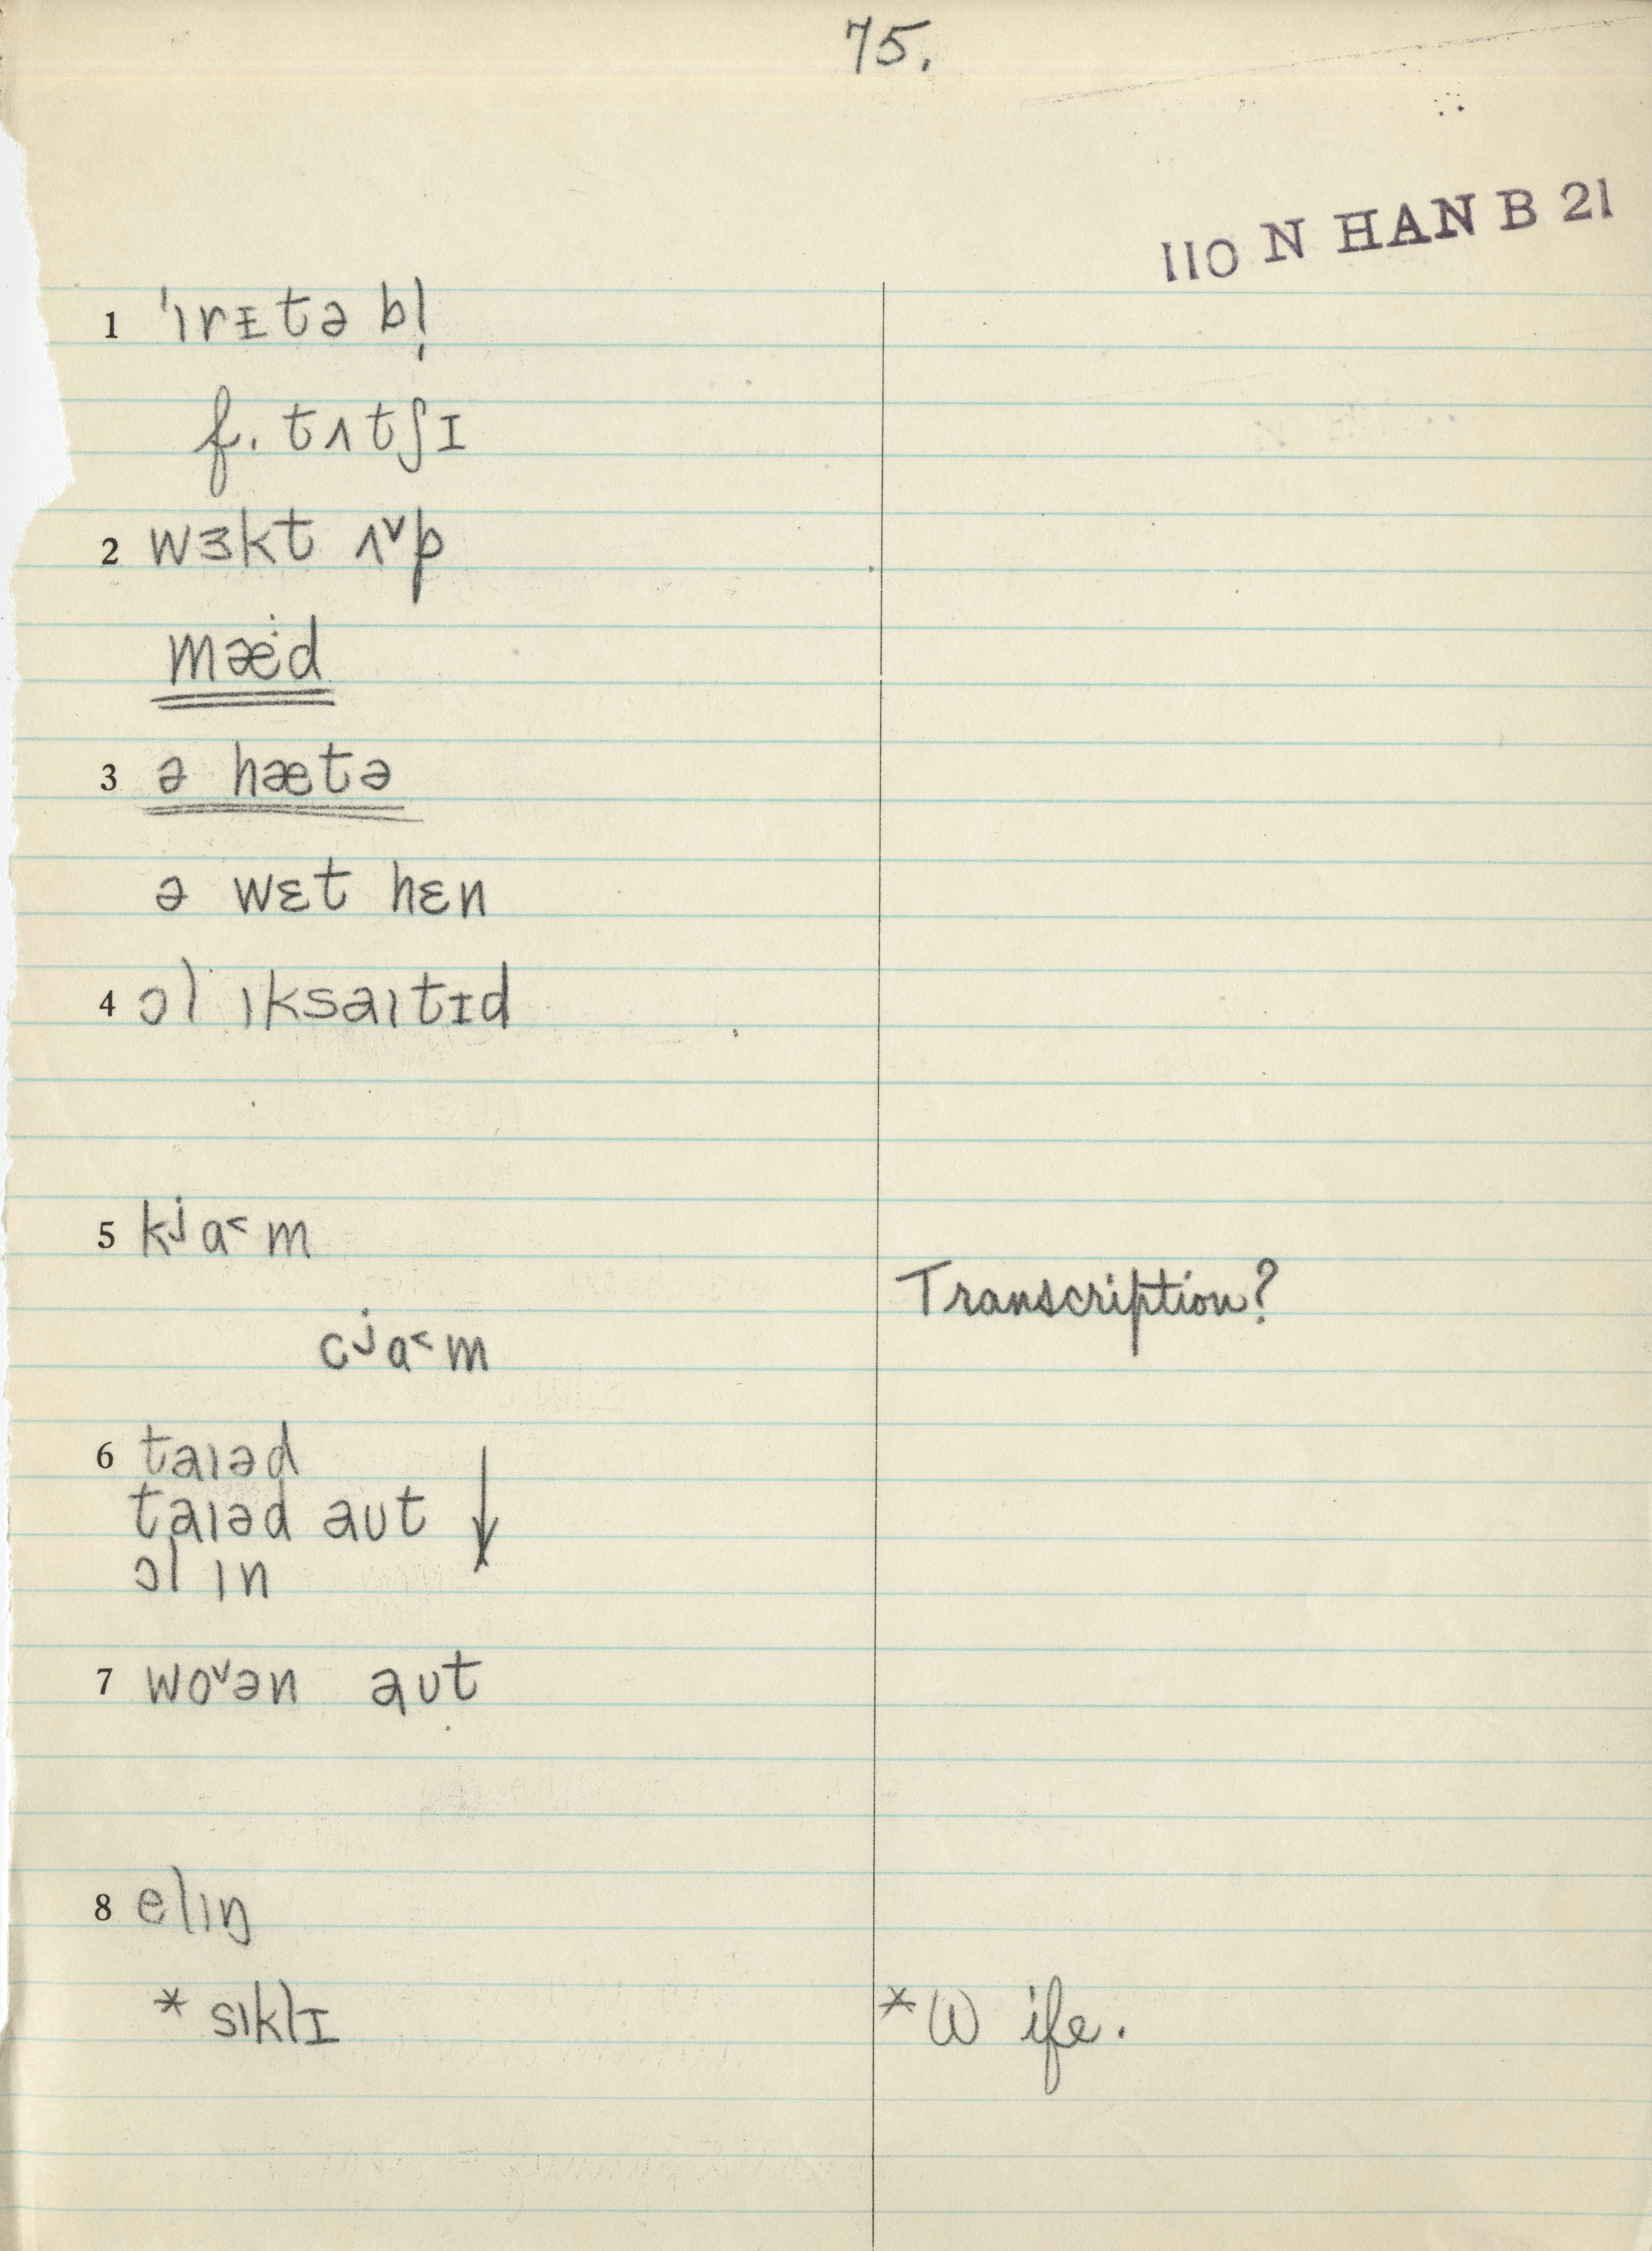 75.
110 N HAN B 21
1 'ɩrɪtə bl̩
f. tʌtʃɪ
2 wɜkt ʌ˅p
mæ·d
3 ə hætə
ə wɛt hɛn
4 ɔl ɩksaɩtɪd
5 kʲa˂m
Transcription?
cʲa˂m
6 taɩəd
taɩəd aʊt ↓
ɔl ɩn
7 wo˅ən aʊt
8 elɩŋ
* sɩklɪ
* Wife.